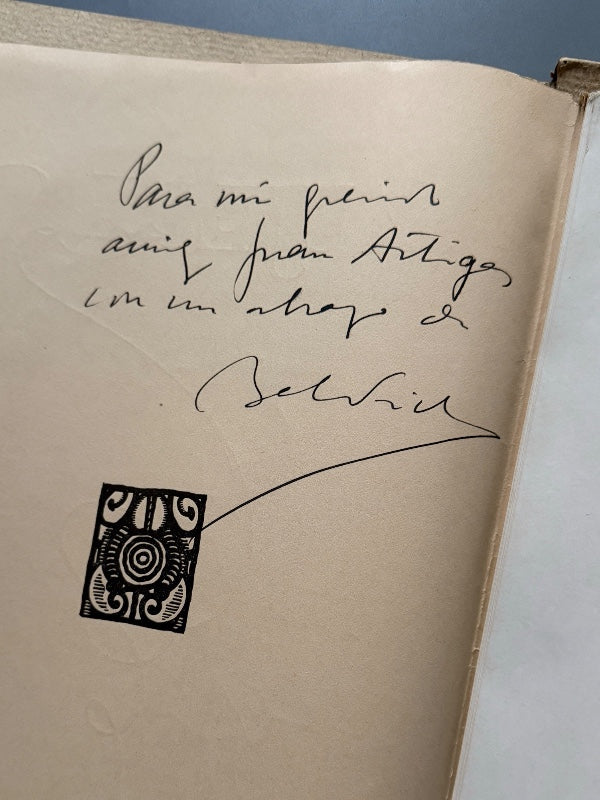 Para mi querido
amigo Juan Artigas
con un abrazo de